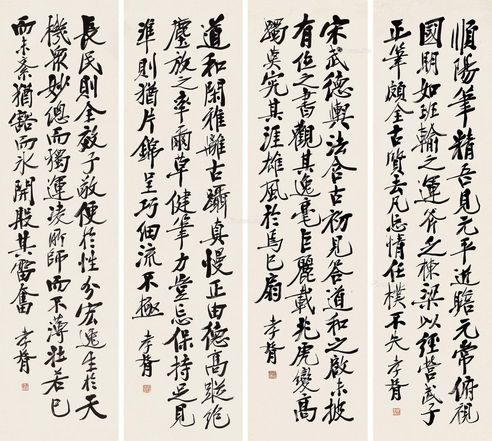 順陽筆精吾見元平近瞻元常俯視
國明如班輸之運斧乏棟梁以經營武子
正筆頗全古質去凡忌情任樸不失 孝胥
宋武德輿法含古初見答道和之啟未披
有位之書觀其逸毫巨麗載兆虎變高
躅莫究其涯雄風於焉已扇 孝胥
道和閑雅離古躡真慢正由德高蹤絕
塵放之率爾草健筆力豈忘保持足見
準則猶片錦呈巧細流不極 孝胥
長民則全效子敬便於性分宏逸生於天
機眾妙總而獨運凌所師而不薄壯若已
而未紊猶豁而冰開殷其雷奮 孝胥